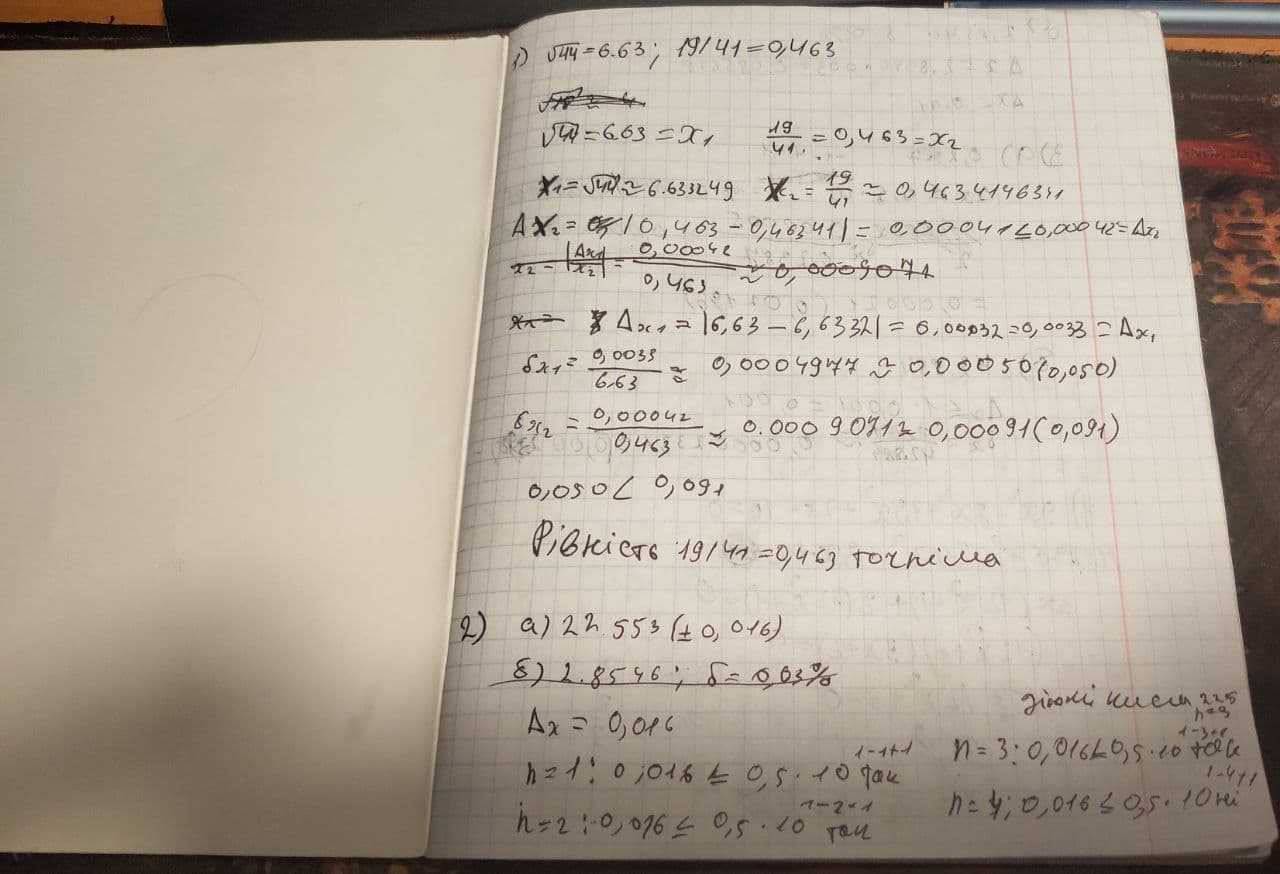 1) √44=6.63; 19/41=0,463
√44=6.63=x₁ 19/41=0,463=x₂
X₁=√44≈6.633249 X₂=19/41≈0,4634146341
ΔX₂=|0,463-0,46341|=0,00041≤0,00042=Δx₂
x₂-|Δx₁/x₂|=0,00042/0,463≈0,000907
Δx₁=|6,63-6,6332|=0.00032=0,0033=Δx₁
δx₁=0,0033/6.63≈0,0004977≈0,00050(0,050)
δx₂=0,00042/0,463≈0.0009071≈0,00091(0,091)
0,050< 0,091
Рівність 19/41=0,463 точніша
2) а) 22.553(±0,016)
б) 2.8546; δ=0,03%
Δx=0,016
n=1:0,016≤0,5·10¹⁻¹⁺¹ так
n=2:0,016≤0,5·10¹⁻²⁺¹ так
числа 225
n=3
n=3:0,016≤0,5·10¹⁻³⁺¹ так
n=4;0,016≤0,5·10¹⁻⁴⁺¹ ні